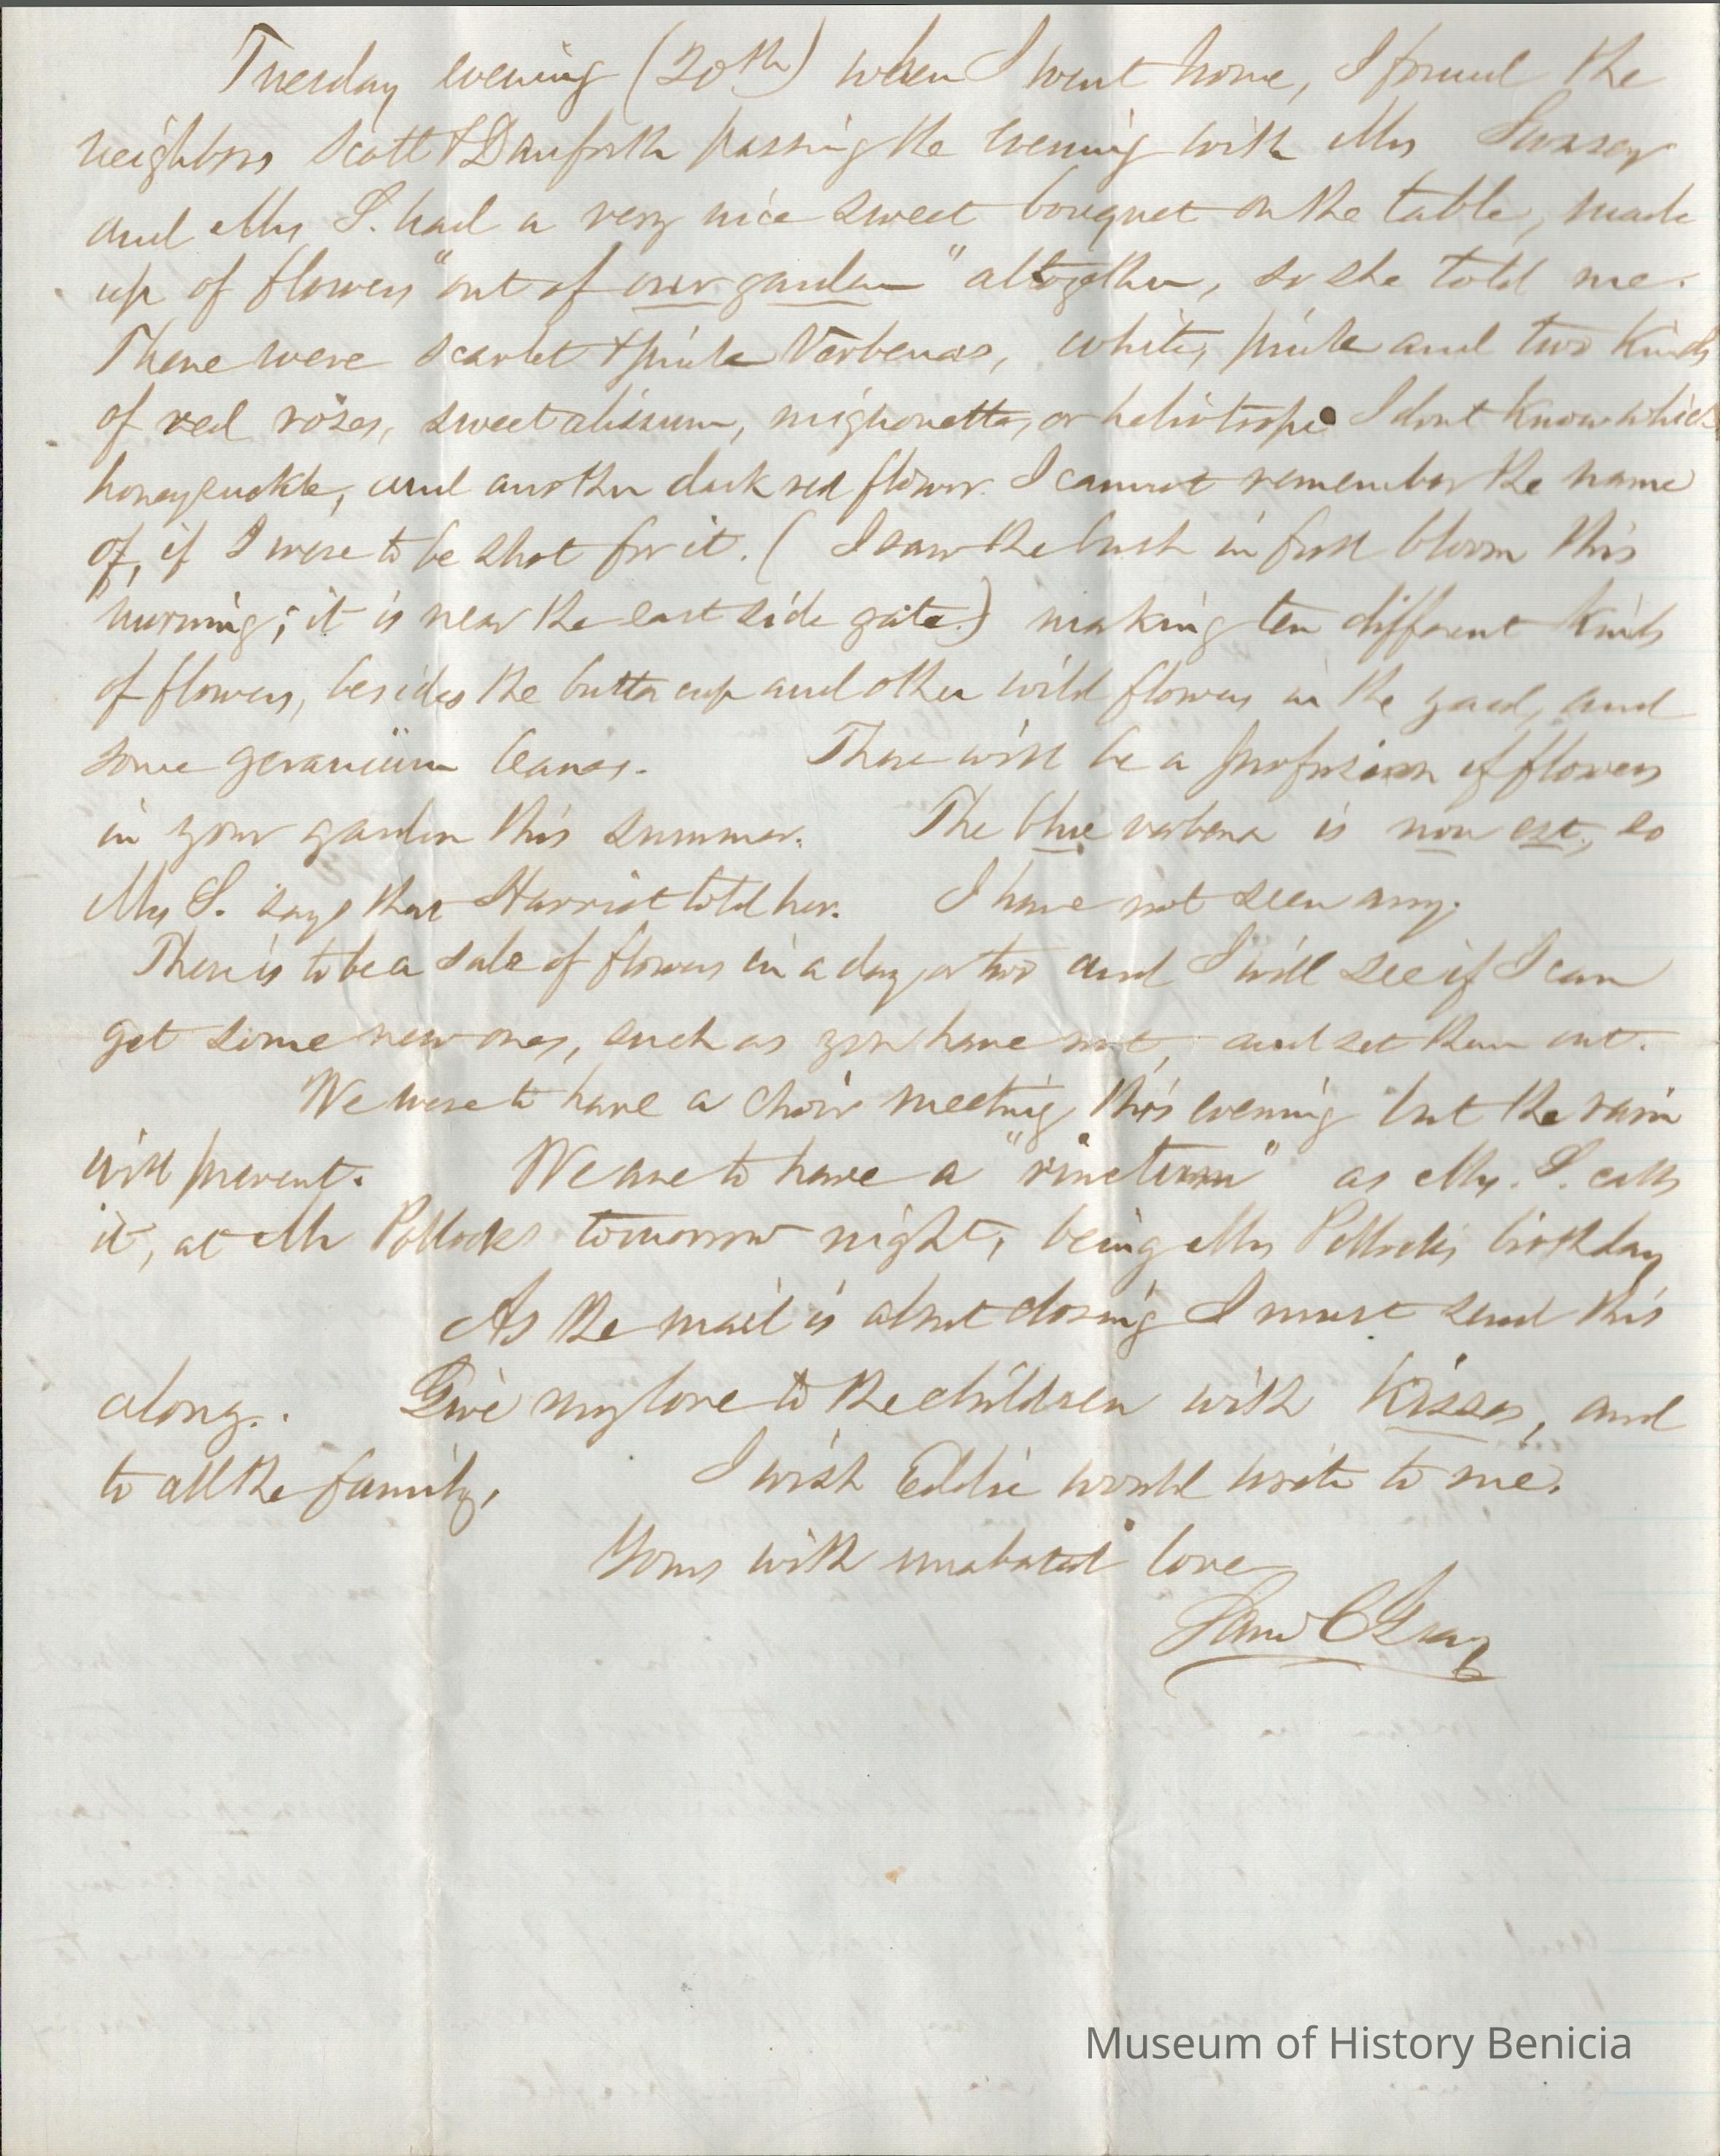 Tuesday evening (20th) when I went home, I found the
neighbors Scott & Danforth passing the evening with Mrs
and Mrs S. had a very nice sweet bouquet on the table, made
up of flowers "out of our garden" altogether, so she told me.
There were scarlet & pink Verbenas, white, pink and two kinds
of red roses, sweet alissum, mignonette, or heliotrope I dont know which
honeysuckle, and another dark red flower I cannot remember the name
of, if I were to be shot for it. ( I saw the bush in full bloom this
morning; it is near the east side gate.) making ten different kinds
of flowers, besides the butter cup and other wild flowers in the yard, and
some geranium leaves. There will be a profusion of flowers
in your garden this summer. The blue verbena is non est, so
Mrs S. says that Harriet told her. I have not seen any.
There is to be a sale of flowers in a day or two and I will see if I can
get some new ones, such as you have not, and set them out.
We were to have a choir meeting this evening but the rain
will prevent. We are to have a "rinctum" as Mrs. S. calls
it, at Mr Pollocks tomorrow night, being Mrs Pollock's birthday
As the mail is about closing I must send this
along. Give my love to the children with Kisses, and
to all the family. I wish Eddie would write to me.
Yours with unabated love
Sam C Gray
Museum of History Benicia